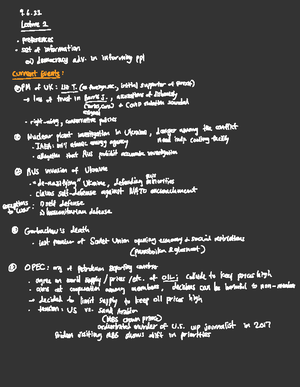 9.6.22
Lecture 2
- preferences
- set of information
↳ democracy adv. in informing ppl
Current Events:
① PM of UK: Liz T.
→ loss of trust in Boris J., accusations of dishonesty
+ COVID violation scandal
- right-wing, conservative policies
② Nuclear plant investigation in Ukraine, danger among the conflict
- IAEA: int'l atomic energy agency
need help cooling facility
- allegation that Rus prohibit accurate investigation
③ Rus invasion of Ukraine
- "de-nazifying" Ukraine, defending minorities
- claims self-defense against NATO encroachment
exceptions to war: ① self defense
② humanitarian defense
④ Gorbachev's death
- last premier of Soviet Union opening economy & social restrictions
(perestroika & glasnost)
⑤ OPEC: org of petroleum exporting countries
- agree on world supply / prices / etc. of OIL; collude to keep prices high
- aims at cooperation among members, decisions can be harmful to non-members
→ decided to limit supply to keep oil prices high
- tension: US vs. Saudi Arabia
(MBS crown prince)
orchestrated murder of U.S. journalist in 2017
Biden visiting MBS shows shift in priorities